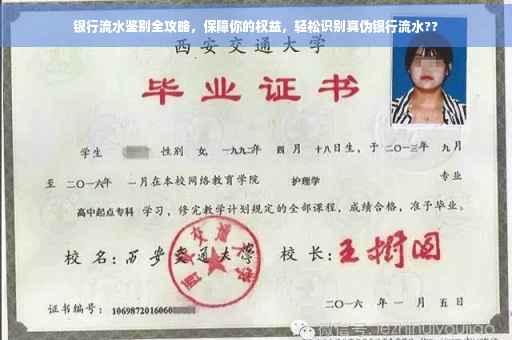 银行流水鉴别全攻略，保障你的权益，轻松识别真伪银行流水??
西安交通大学
毕业证书
学生 性别 女，一九九二年 四月 十八日生，于二〇一三年 九月
至 二〇一六年 一月在本校网络教育学院 护理学 专业
高中起点专科 学习，修完教学计划规定的全部课程，成绩合格，准予毕业。
校 名：西安交通大学 校 长：王树国
西安交通大学
证书编号：1069872016060
二〇一六 年 一 月 五 日
微信号: jezhihuiyoujiao